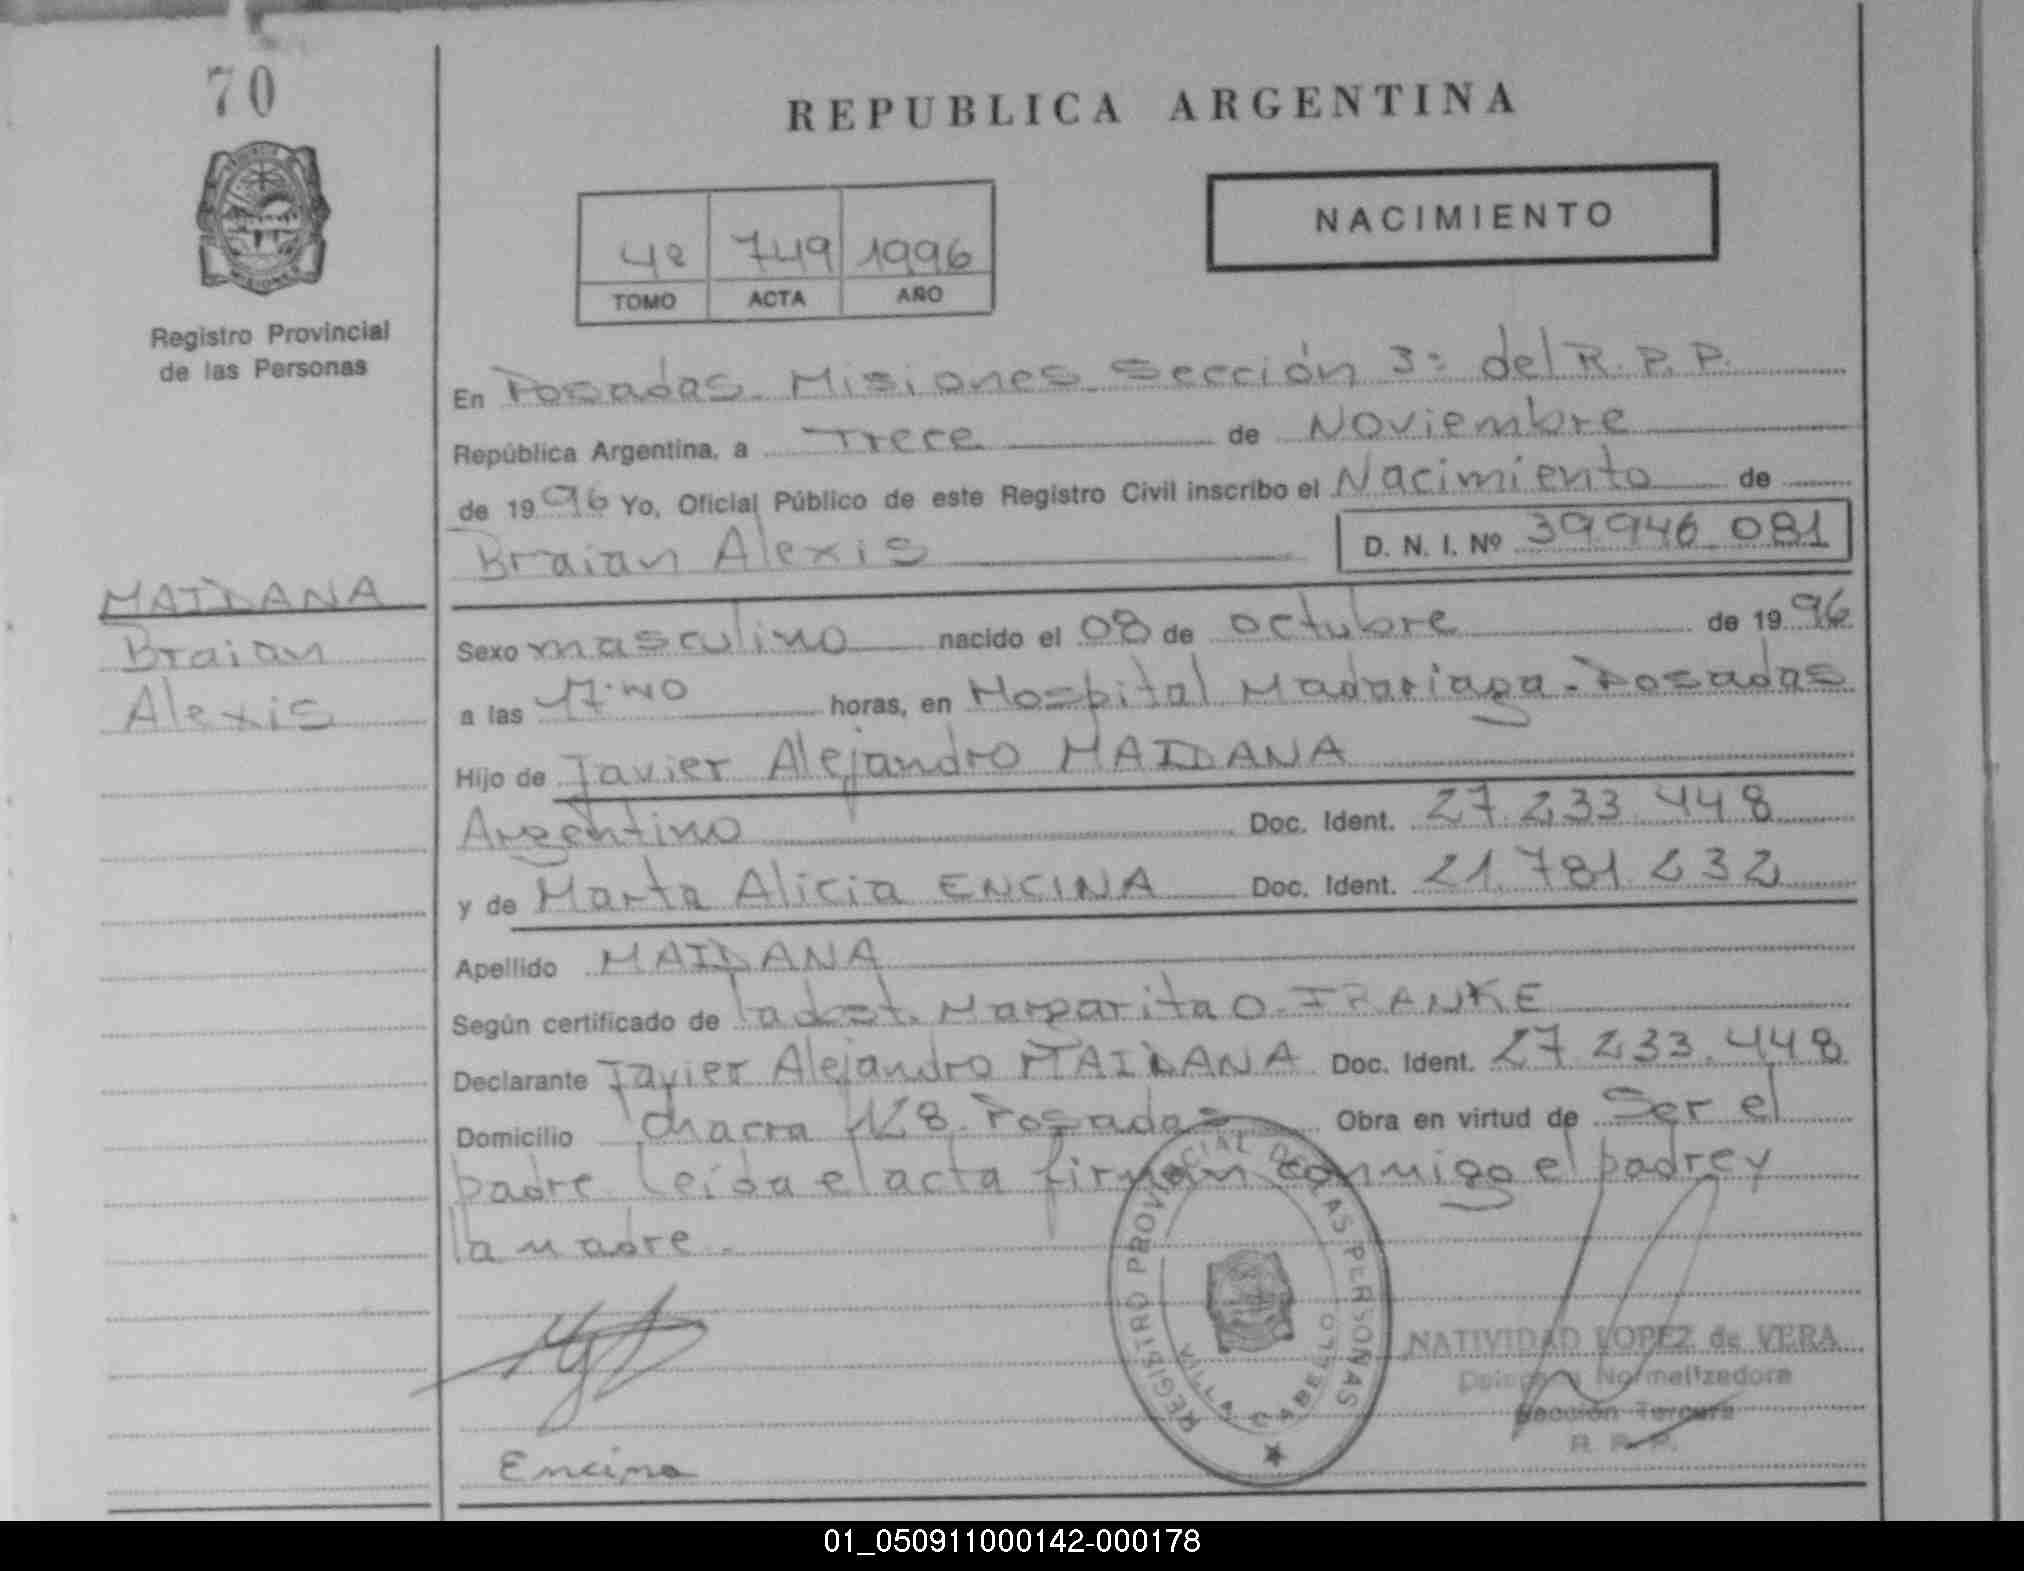 70
REPUBLICA ARGENTINA
NACIMIENTO
4º 749 1996
TOMO ACTA AÑO
Registro Provincial
de las Personas
En Posadas. Misiones. Sección 3: del R.P.P.
República Argentina, a Trece de Noviembre
de 1996 Yo, Oficial Público de este Registro Civil inscribo el Nacimiento de
Braian Alexis D. N. I. Nº 39.946.081
MAIDANA
Braian
Alexis
Sexo masculino nacido el 08 de octubre de 1996
a las horas, en Hospital Madariaga - Posadas
Hijo de Javier Alejandro MAIDANA
Argentino Doc. Ident. 27.233.448
y de Marta Alicia ENCINA Doc. Ident. 21.781.232
Apellido MAIDANA
Según certificado de la obst. Margarita O. FRANKE
Declarante Javier Alejandro MAIDANA Doc. Ident. 27.233.448
Domicilio Chacra 128. Posadas Obra en virtud de Ser el
padre. Leída el acta firman conmigo el padre y
la madre.
REGISTRO PROVINCIAL DE LAS PERSONAS
VILLA CABELLO
NATIVIDAD LOPEZ de VERA
Normalizadora
Sección Tercera
R. P. P.
Encina
01_050911000142-000178